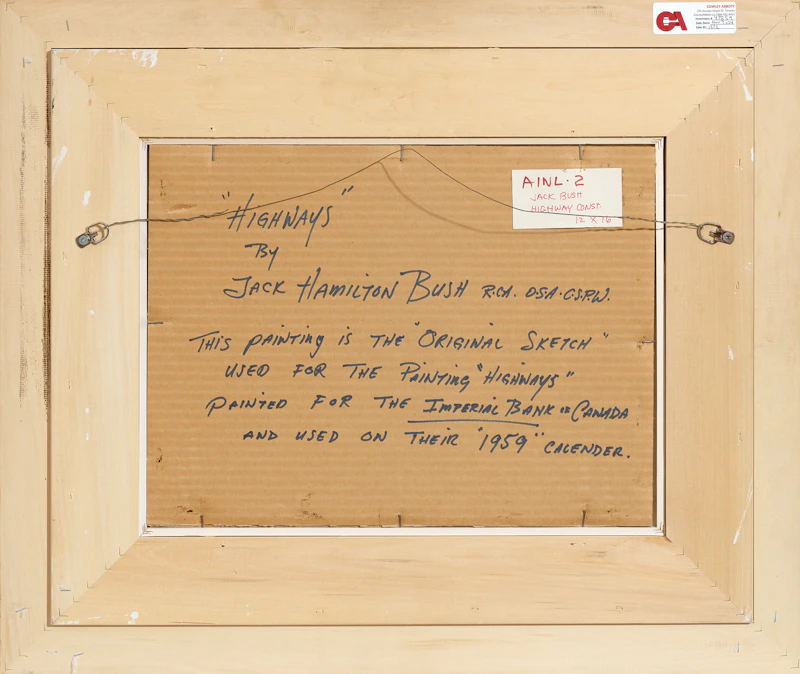 COWLEY ABBOTT
AINL·2
JACK BUSH
HIGHWAY CONST.
12 X 16
"HIGHWAYS"
By
JACK HAMILTON BUSH R.C.A. O.S.A. C.S.P.W.
THIS PAINTING IS THE "ORIGINAL SKETCH"
USED FOR THE PAINTING "HIGHWAYS"
PAINTED FOR THE IMPERIAL BANK OF CANADA
AND USED ON THEIR "1959" CALENDER.